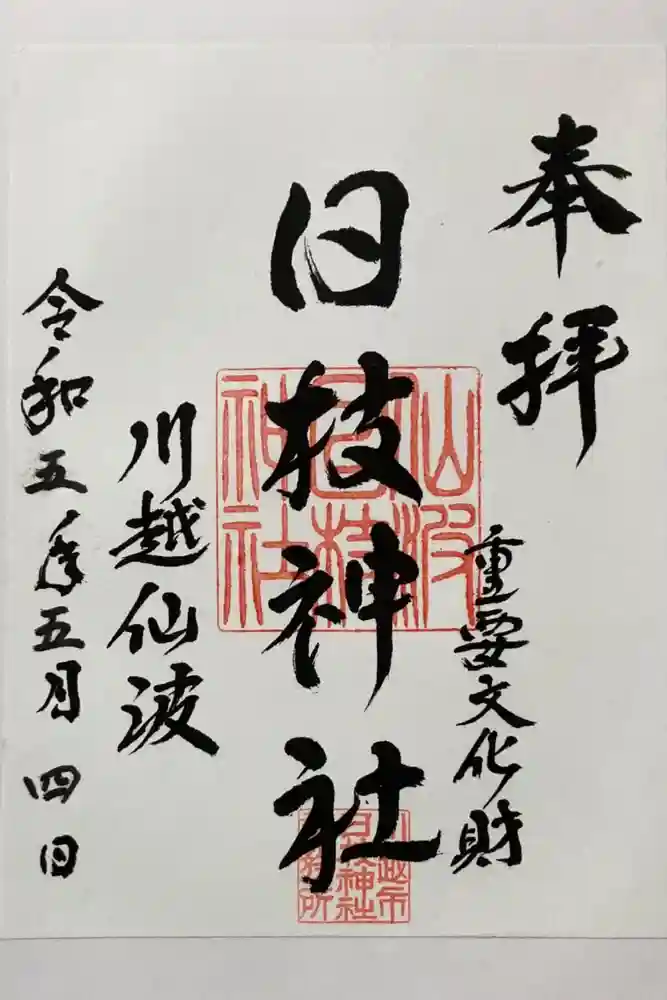 奉拝
重要文化財
日枝神社
仙波
日枝
神社
川越市
日枝神社
社務所
川越仙波
令和五年五月四日